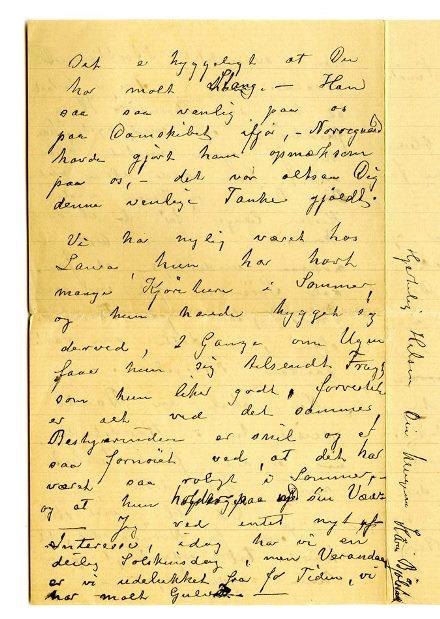 Det er hyggeligt at Du
har malt Stang. — Han
saa saa venlig paa os
paa Damskibet ifjor, —
havde gjort ham opmærksom
paa os, — det var altsaa Dig
denne venlige Tanke gjældt.
Vi har nylig været hos
Laura, hun har havt
mange Kjøreture i Sommer,
og hun havde hygget sig
derved, 2 Gange om Ugen
faaer hun sig tilsendt Frugt
som hun liker godt, forresten
er alt ved det samme,
Bestyrerinden er snil og er
saa fornøiet ved, at det har
været saa roligt i Sommer, —
og at hun paa sin
— Jeg ved intet nyt af
Interesse, idag har vi en
deilig Solskinsdag, men Verandaen
er vi udelukket fra for Tiden, vi
har malt Gulvet. —
Hjertelig Hilsen Din